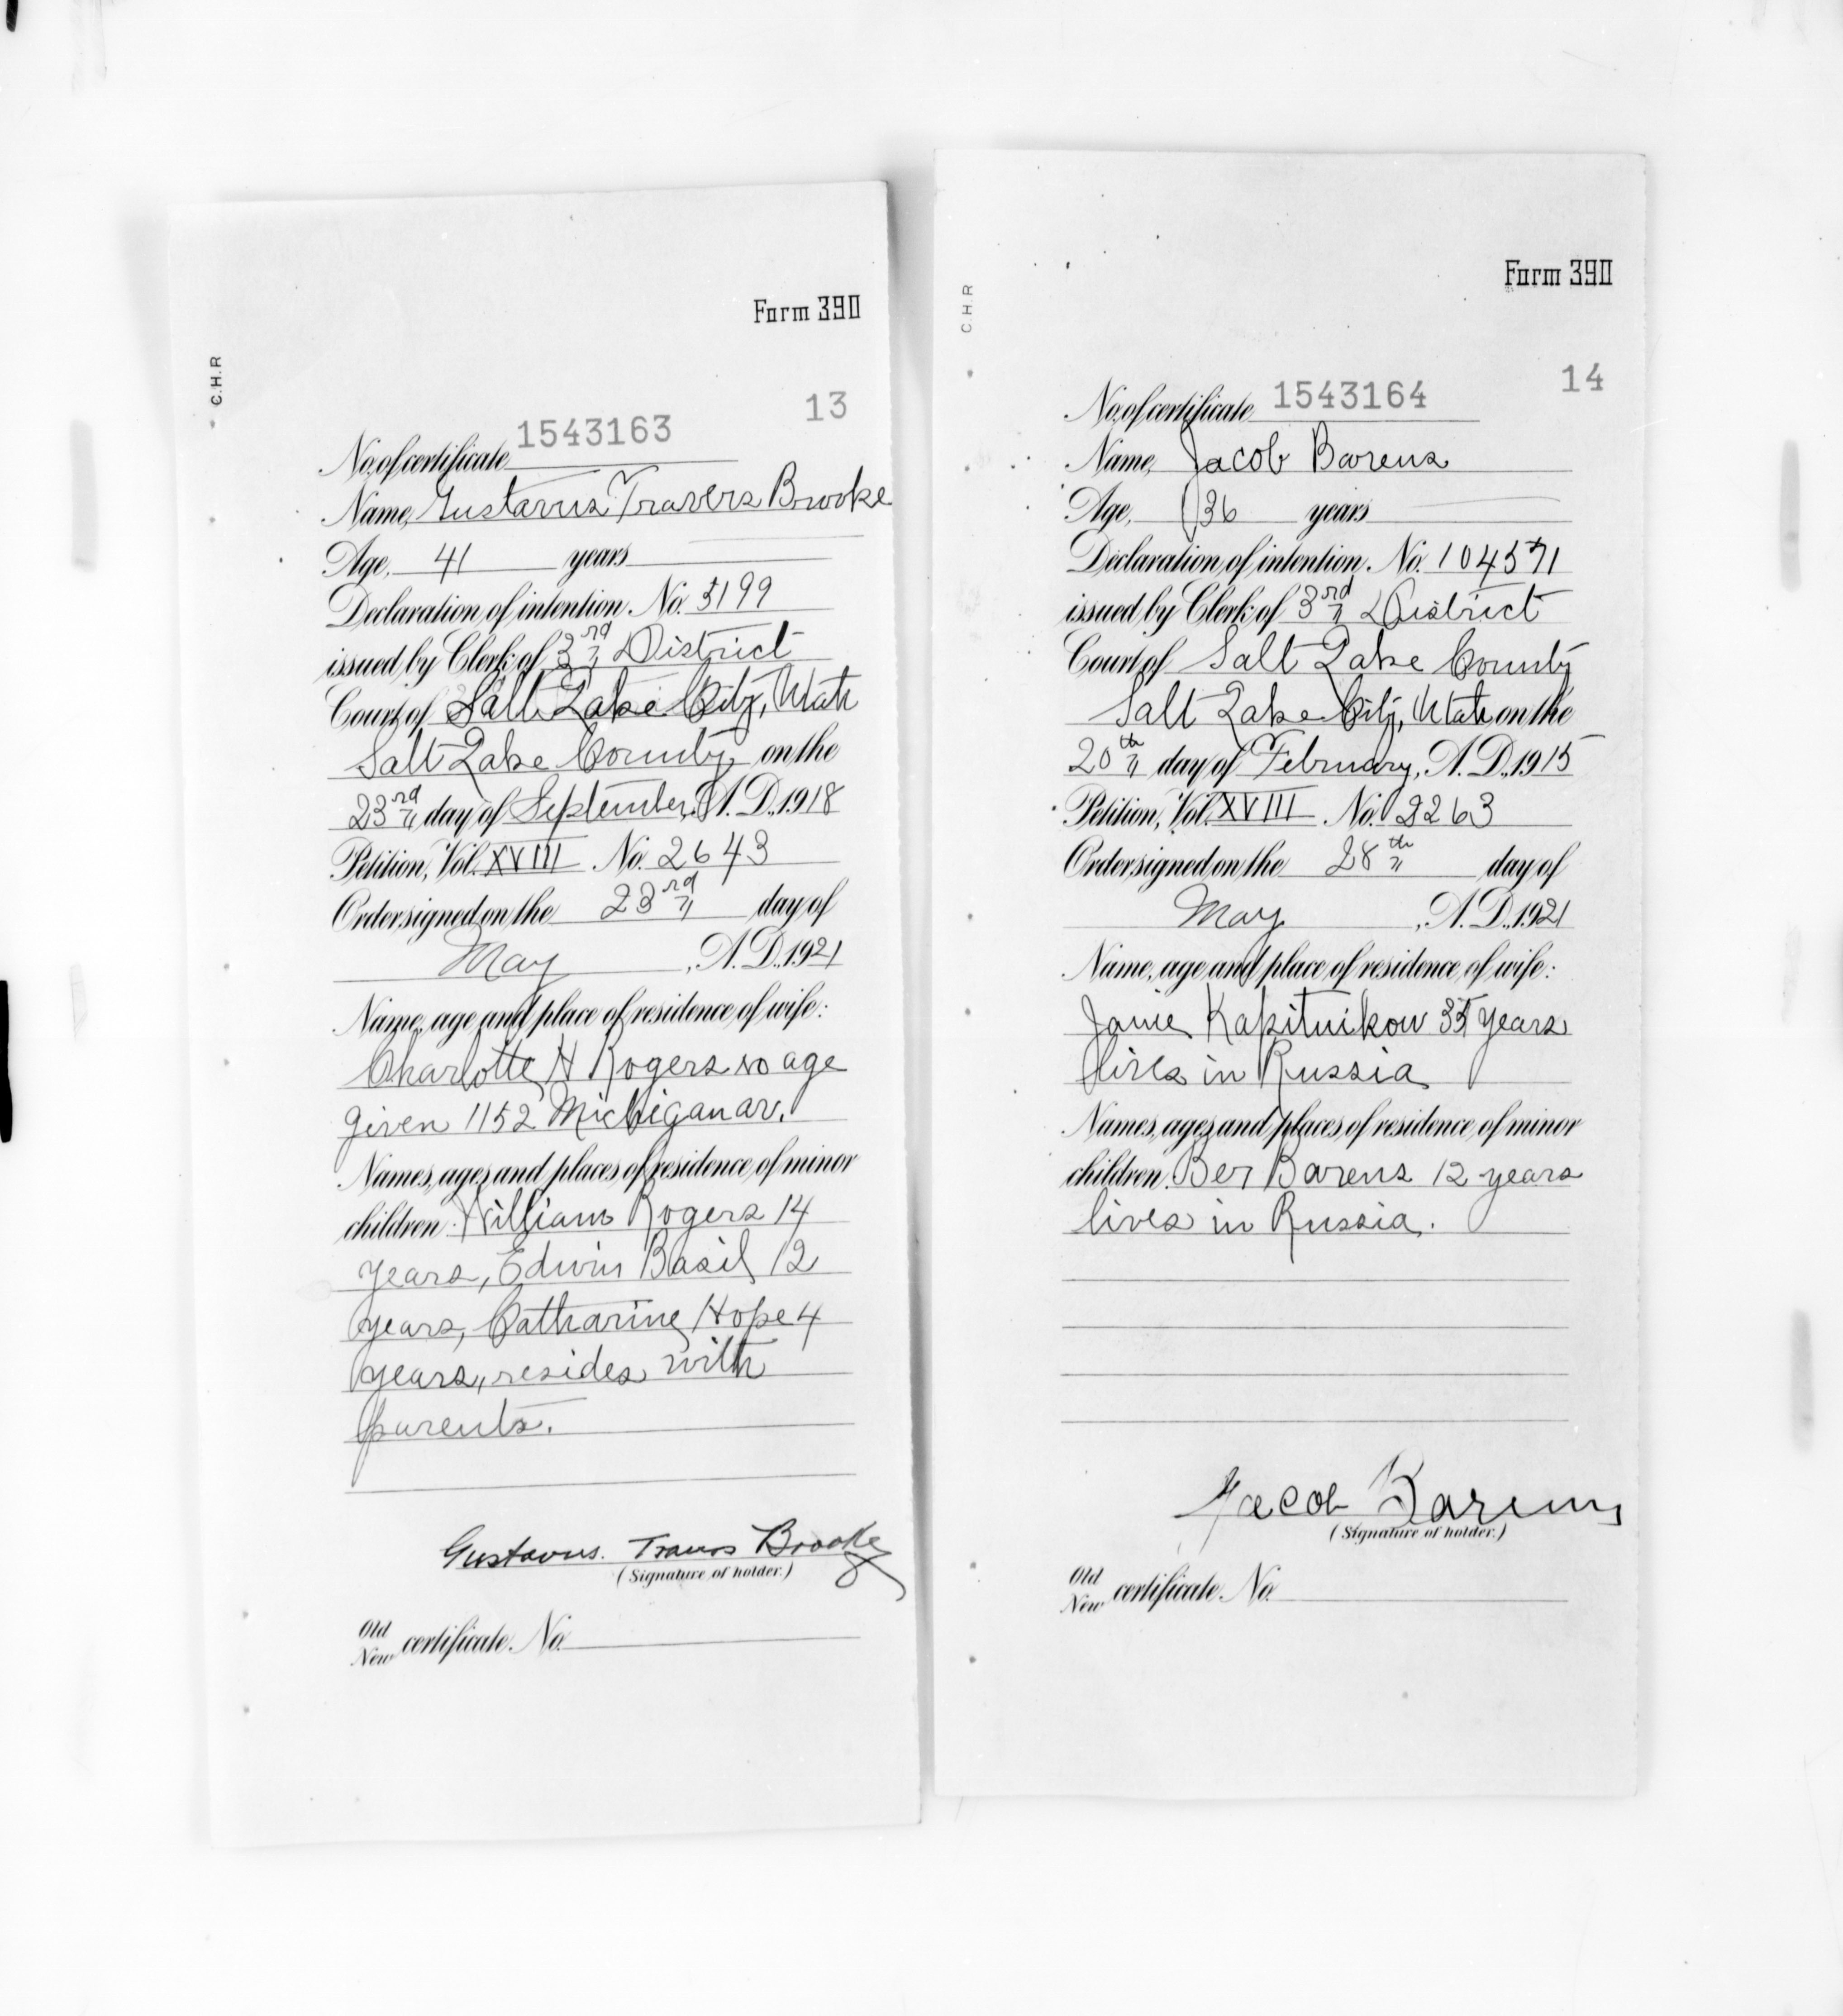 C.H.R
Form 390
13
No. of certificate 1543163
Name, Gustavus Travers Brooke
Age, 41 years
Declaration of intention. No. 3199
issued by Clerk of 3rd District
Court of Salt Lake City, Utah
Salt Lake County on the
23rd day of September, A. D., 1918
Petition, Vol. XVIII No. 2643
Order signed on the 23rd day of
May, A. D., 1921
Name, age and place of residence of wife:
Charlotte H Rogers no age
given 1152 Michigan av.
Names, ages and places of residence of minor
children. William Rogers 14
years, Edwin Basil 12
years, Catharine Hope 4
years, resides with
parents.
Gustavus. Travers Brooke
(Signature of holder.)
Old
New certificate No.
C.H.R
Form 390
14
No. of certificate 1543164
Name, Jacob Barens
Age, 36 years
Declaration of intention. No. 104571
issued by Clerk of 3rd District
Court of Salt Lake County
Salt Lake City, Utah on the
20th day of February, A. D., 1915
Petition, Vol. XVIII No. 2263
Order signed on the 28th day of
May, A. D., 1921
Name, age and place of residence of wife:
Kapitnikow years
lives in Russia
Names, ages and places of residence of minor
children. Ber Barens 12 years
lives in Russia.
Jacob Barens
(Signature of holder.)
Old
New certificate No.